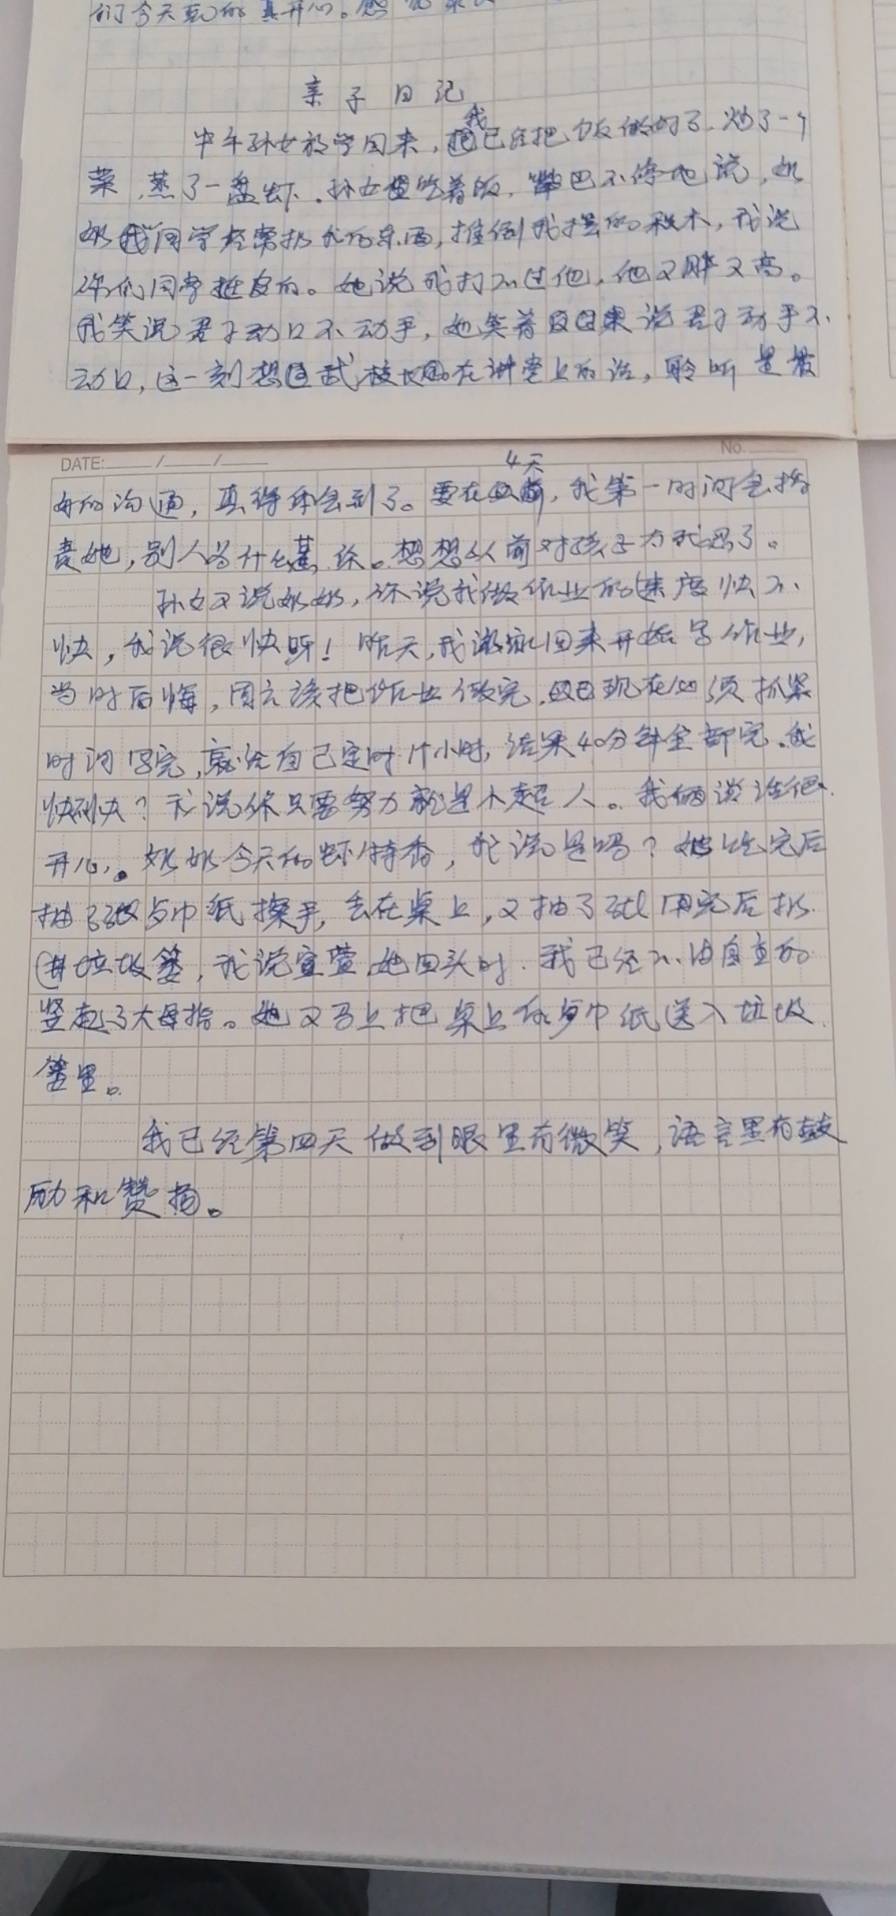 们今天玩的真开心。感
亲子日记
中午孙女放学回来,我已经把饭做好了,炒了一个
菜,蒸了一盘虾。孙女吃着饭,嘴巴不停地说,奶
奶我同学经常扔我的东西,推倒我搭的积木,我说
你们同学挺皮的。她说我打不过他,他又胖又高。
我笑说君子动口不动手,她笑着说君子动手不
动口,这一刻想武校长在讲堂上的话,聆听是最
DATE: / / No.
好的沟通,真得体会到了。要在4天前,我第一时间会指
责她,别人为什么惹你。想想以前对孩子方式错了。
孙女又说奶奶,你说我做作业的速度快不
快,我说很快呀!昨天,我游泳回来开始写作业,
当时后悔,周六该把作业做完,现在必须抓紧
时间写完,就给自己定时1个小时,结果40分钟全部完。我
快不快?我说你只要努力就是小超人。我俩说
开心。奶奶今天的虾特香,我说是吗?她吃完后
抽了张餐巾纸擦手,丢在桌上,又抽了张用完后扔
进垃圾篓,我说宣萱她回头时,我已经不由自主的
竖起了大母指。她又马上把桌上的餐巾纸送入垃圾
篓里。
我已经第四天做到眼里有微笑,语言里有鼓
励和赞扬。